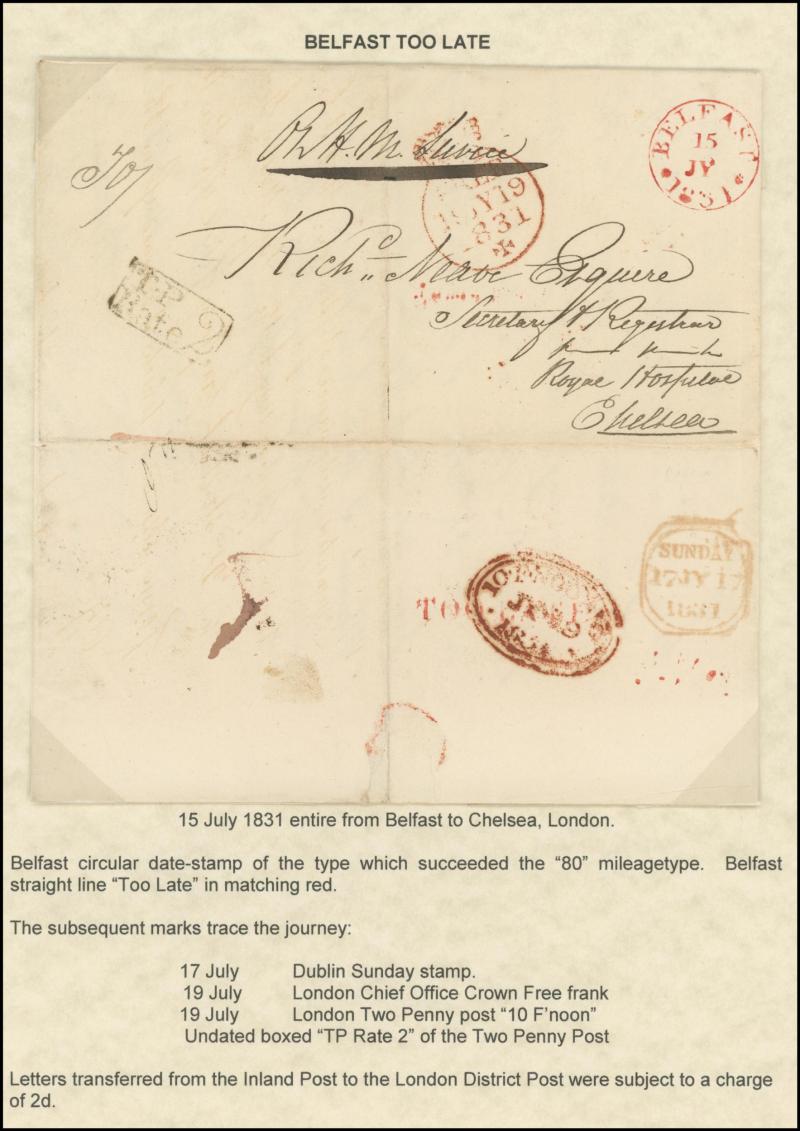 BELFAST TOO LATE
To/
On H. M. Service
BELFAST
15
JY
1831
JY 19
1831
T.P
Rate 2
Rich.d Neave Esquire
Secretary & Registrar
Royal Hospital
Chelsea
TOO
10 F.NOON
JY 19
1831
SUNDAY
17 JY 17
1831
15 July 1831 entire from Belfast to Chelsea, London.
Belfast circular date-stamp of the type which succeeded the “80” mileagetype. Belfast
straight line “Too Late” in matching red.
The subsequent marks trace the journey:
17 July Dublin Sunday stamp.
19 July London Chief Office Crown Free frank
19 July London Two Penny post “10 F’noon”
Undated boxed “TP Rate 2” of the Two Penny Post
Letters transferred from the Inland Post to the London District Post were subject to a charge
of 2d.